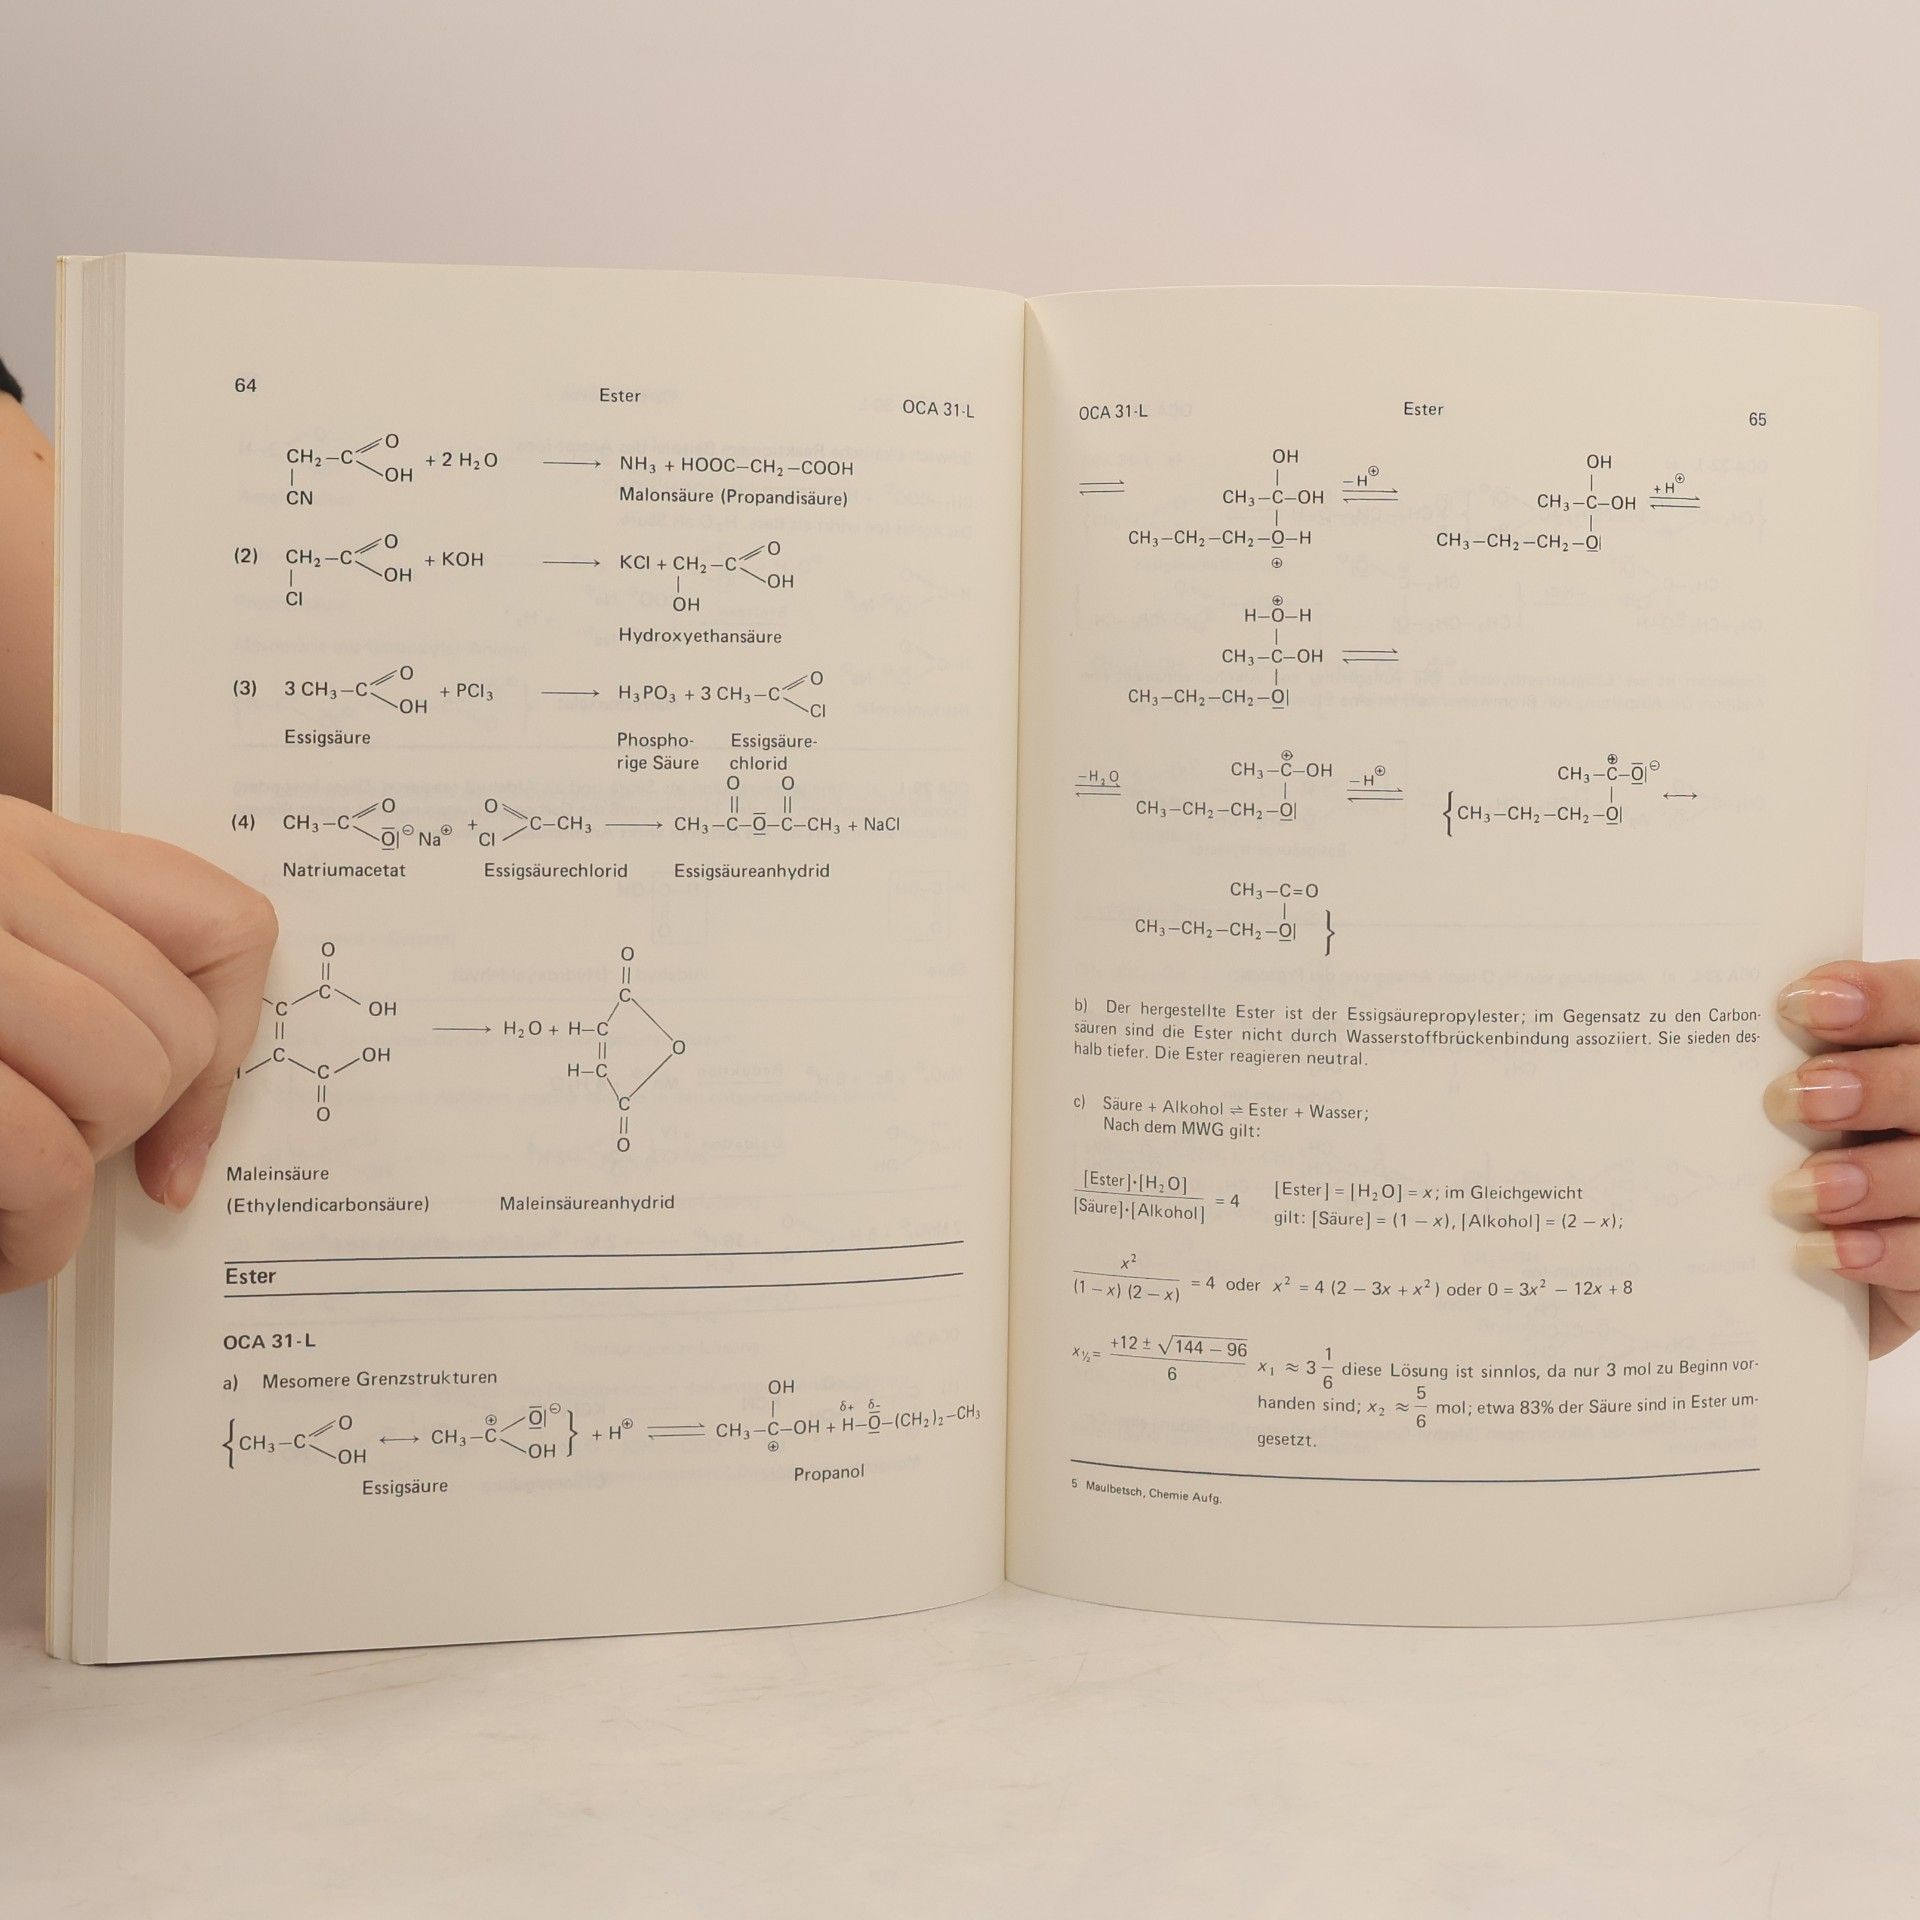 64
Ester
OCA 31-L
CH₂–C
O
OH
CN
+ 2 H₂O ⟶ NH₃ + HOOC–CH₂–COOH
Malonsäure (Propandisäure)
(2) CH₂–C
O
OH
Cl
+ KOH ⟶ KCl + CH₂–C
O
OH
OH
Hydroxyethansäure
(3) 3 CH₃–C
O
OH
+ PCl₃ ⟶ H₃PO₃ + 3 CH₃–C
O
Cl
Essigsäure
Phospho-
rige Säure
Essigsäure-
chlorid
(4) CH₃–C
O
O̲̅|⊖ Na⊕
+
O
Cl
C–CH₃ ⟶
O O
|| ||
CH₃–C–O̲̅–C–CH₃ + NaCl
Natriumacetat Essigsäurechlorid Essigsäureanhydrid
O
||
C
OH
C
||
C
OH
C
||
O
⟶ H₂O +
O
||
C
H–C
||
H–C
O
C
||
O
Maleinsäure
(Ethylendicarbonsäure) Maleinsäureanhydrid
Ester
OCA 31-L
a) Mesomere Grenzstrukturen
{CH₃–C
O
OH
⟷ CH₃–C⊕
O̲̅|⊖
OH
} + H⊕ ⇌
OH
|
CH₃–C–OH + H–O̲̅–(CH₂)₂–CH₃
⊕
δ+ δ-
Essigsäure
Propanol
OCA 31-L
Ester
65
⇌
OH
|
CH₃–C–OH
|
CH₃–CH₂–CH₂–O̲–H
⊕
–H⊕
⇌
OH
|
CH₃–C–OH
|
CH₃–CH₂–CH₂–O̲|
+H⊕
⇌
⊕
H–O–H
|
CH₃–C–OH ⇌
|
CH₃–CH₂–CH₂–O̲|
–H₂O
⇌
⊕
CH₃–C–OH
|
CH₃–CH₂–CH₂–O̲|
–H⊕
⇌
⊕
CH₃–C–O̅|⊖
|
{CH₃–CH₂–CH₂–O̲|
⟷
CH₃–C=O
|
CH₃–CH₂–CH₂–O̲| }
b) Der hergestellte Ester ist der Essigsäurepropylester; im Gegensatz zu den Carbon-
säuren sind die Ester nicht durch Wasserstoffbrückenbindung assoziiert. Sie sieden des-
halb tiefer. Die Ester reagieren neutral.
c) Säure + Alkohol ⇌ Ester + Wasser;
Nach dem MWG gilt:
[Ester]·[H₂O]
[Säure]·[Alkohol]
= 4
[Ester] = [H₂O] = x; im Gleichgewicht
gilt: [Säure] = (1 – x), [Alkohol] = (2 – x);
x²
(1 – x) (2 – x)
= 4 oder x² = 4 (2 – 3x + x²) oder 0 = 3x² – 12x + 8
x½ =
+12 ± √144 – 96
6
x₁ ≈ 3 1/6 diese Lösung ist sinnlos, da nur 3 mol zu Beginn vor-
handen sind; x₂ ≈ 5/6 mol; etwa 83% der Säure sind in Ester um-
gesetzt.
5 Maulbetsch, Chemie Aufg.